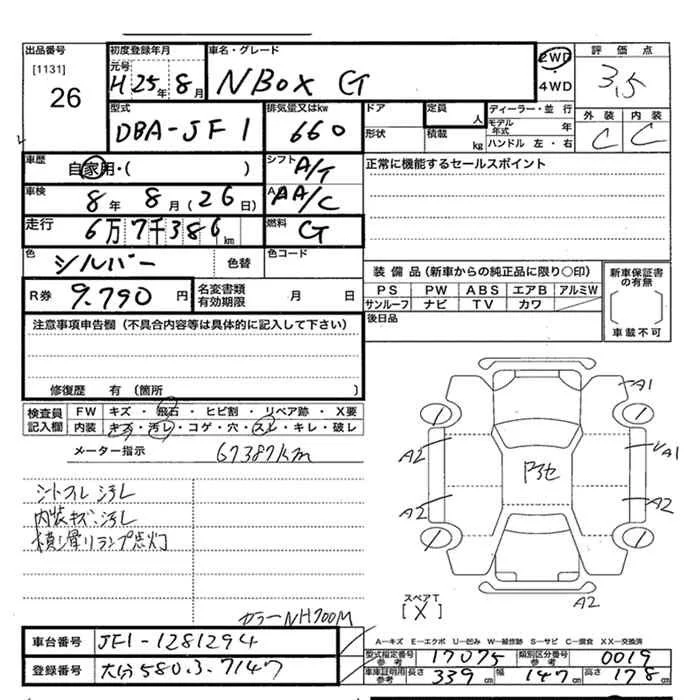 出品番号 初度登録年月 車名・グレード 評価点
[1131] 元号
26 H25年8月 NBOX G 2WD 3.5
4WD
型式 排気量又はkw ドア 定員 人 ディーラー・並行 外装 内装
DBA-JF1 660 形状 積載 kg モデル年式 年 C C
ハンドル 左・右
車歴 自家用・( ) シフト A/T 正常に機能するセールスポイント
車検 8年8月(26日) AA/C
走行 6万7千386km 燃料 G
色 シルバー 色替 色コード
装備品(新車からの純正品に限り○印) 新車保証書の有無
R券 9.790円 名変書類有効期限 月 日 PS PW ABS エアB アルミW
サンルーフ ナビ TV カワ
( )
車載不可
注意事項申告欄(不具合内容等は具体的に記入して下さい) 後日品
修復歴 有(箇所 )
検査員記入欄 FW キズ・飛石・ヒビ割・リペア跡・X要
内装 キズ・汚レ・コゲ・穴・スレ・キレ・破レ
メーター指示 67387km
A1
A2 A1
内セ
シートスレ 汚レ
内装キズ、汚レ A2 A2
横滑りランプ点灯
スペアT
[X] A2
カラーNH700M
車台番号 JF1-1281294 A―キズ E―エクボ U―凹み W―補修跡 S―サビ C―腐食 XX―交換済
型式指定番号 参考 17075 類別区分番号 参考 0019
登録番号 大分580.3.7147 車庫証明用 参考 長さ 339cm 幅 147cm 高さ 178cm